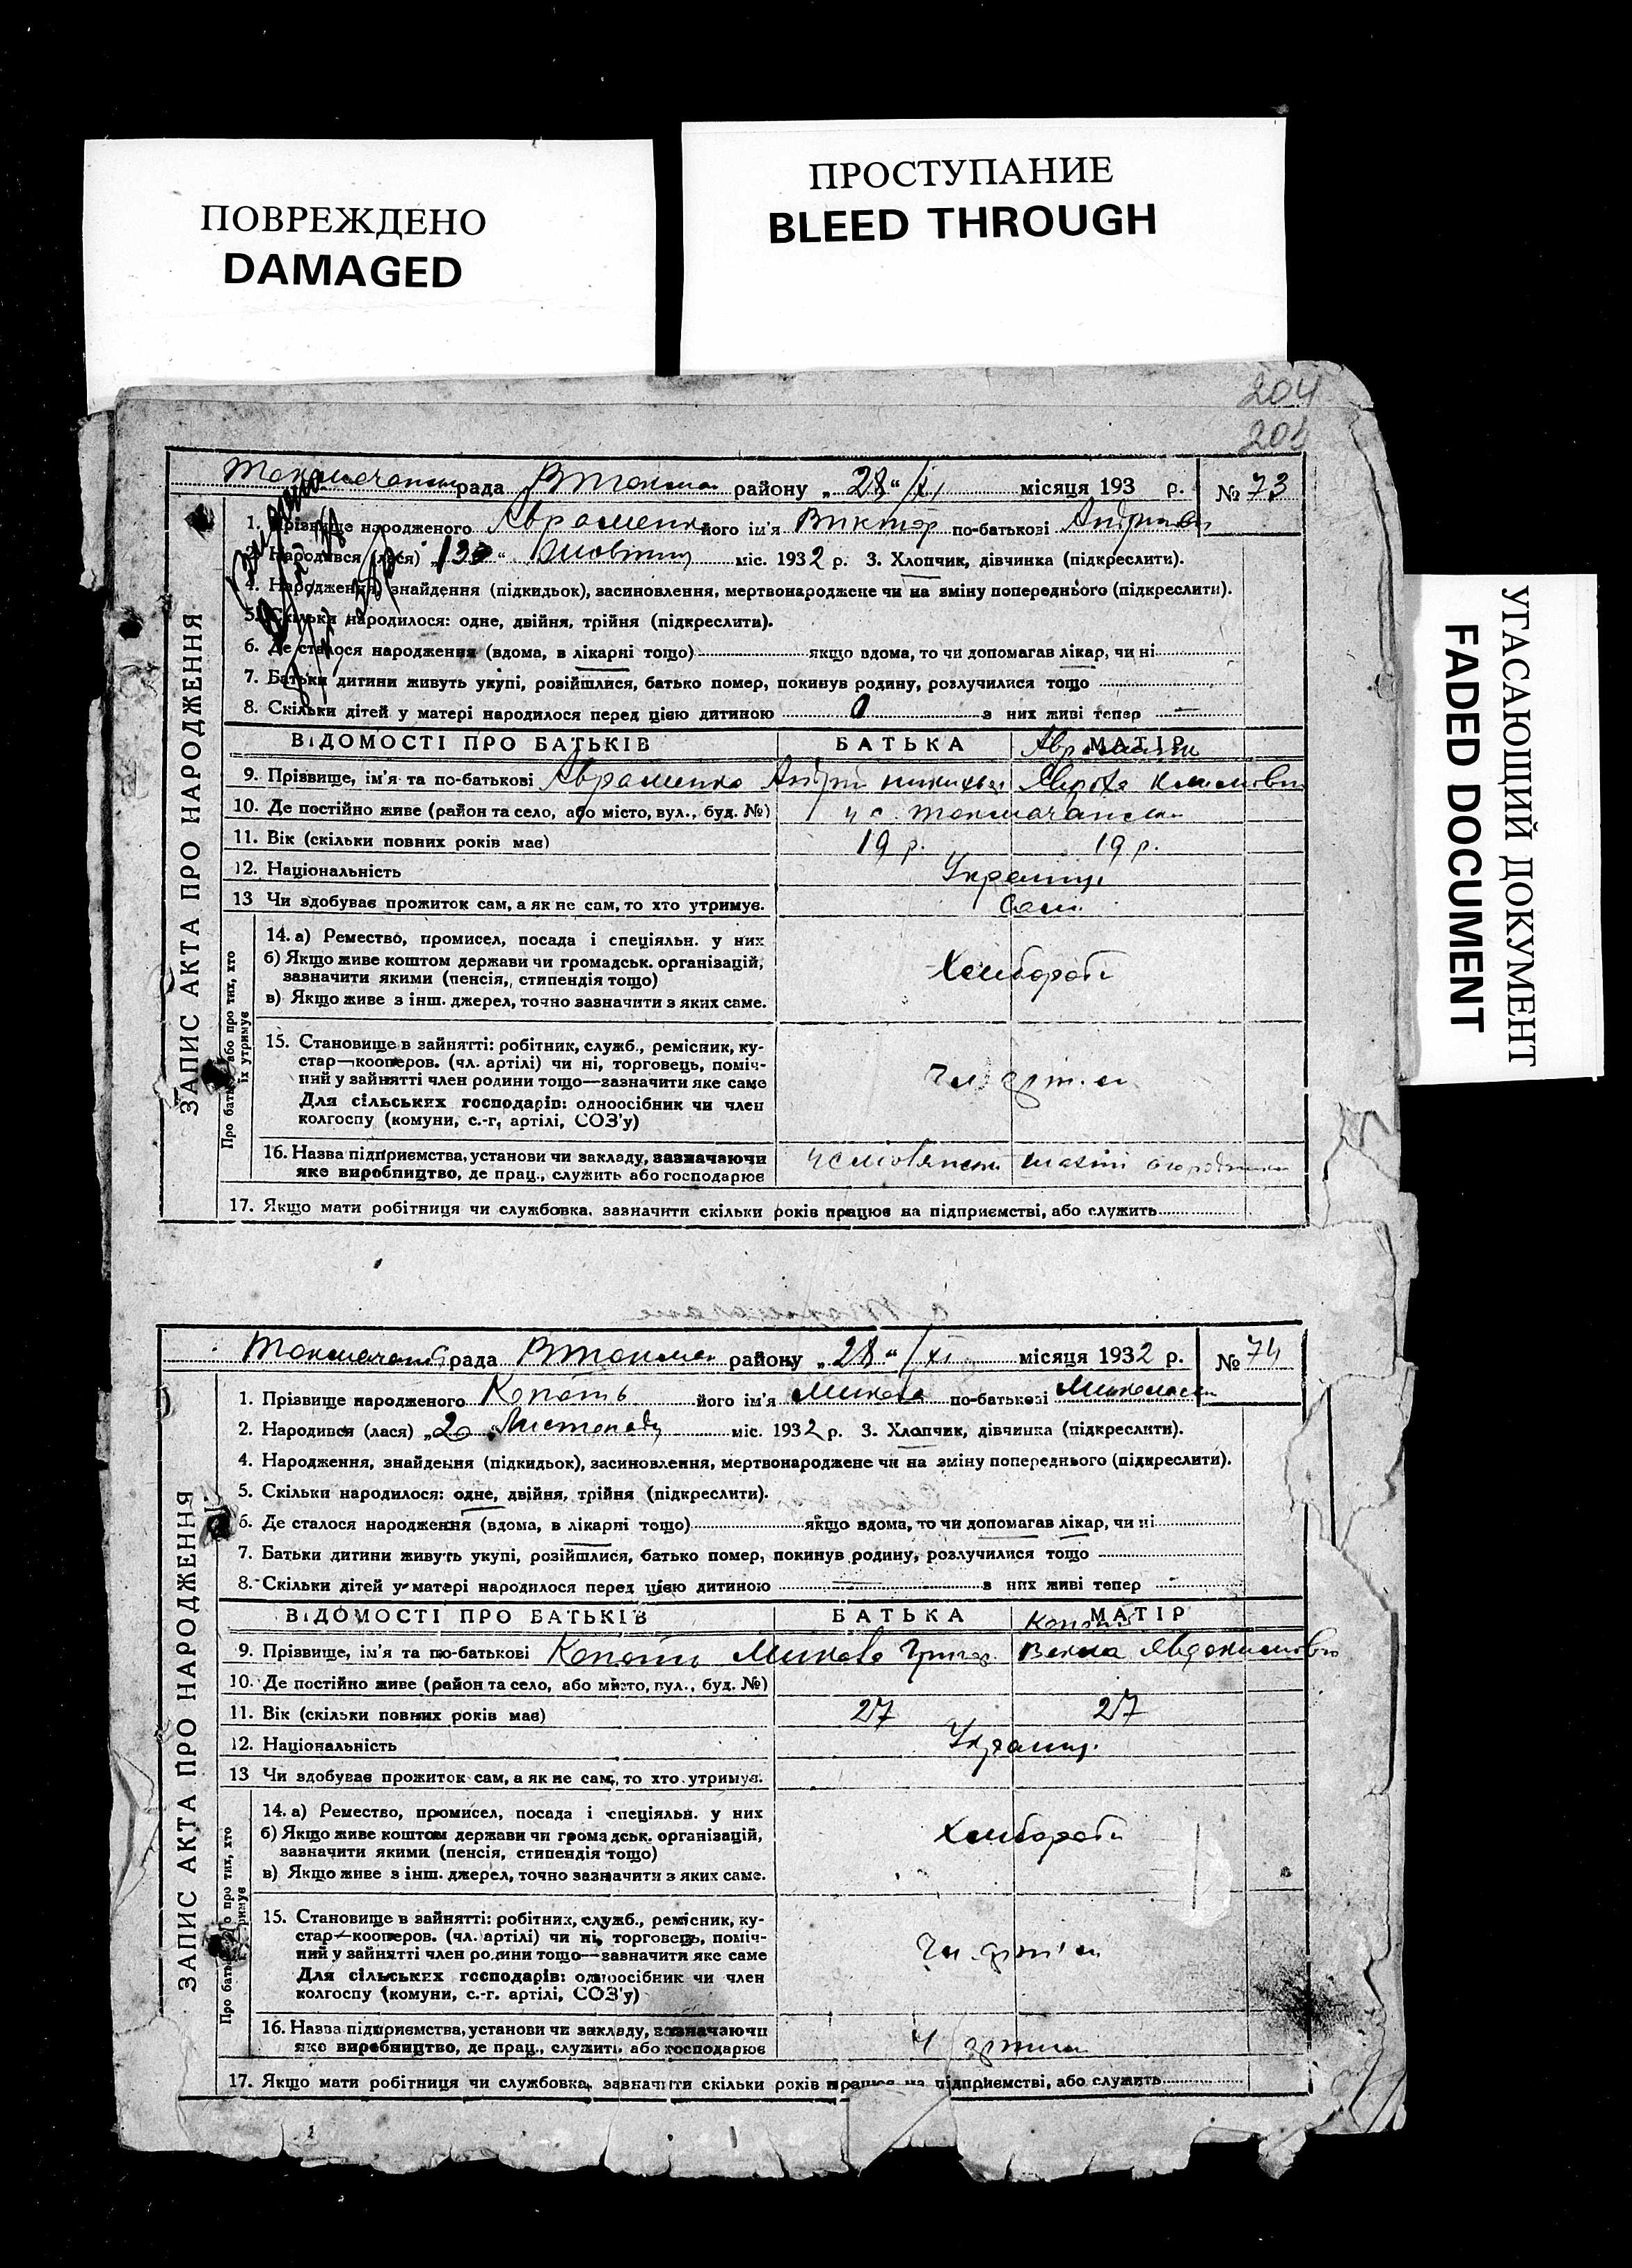 ПОВРЕЖДЕНО
DAMAGED
ПРОСТУПАНИЕ
BLEED THROUGH
УГАСАЮЩИЙ ДОКУМЕНТ
FADED DOCUMENT
204
ЗАПИС АКТА ПРО НАРОДЖЕННЯ
рада ВТокмак району „28“/XI місяця 193 р. № 73
1. Прізвище народженого Авраменко його ім'я Виктор по-батькові
2. Народився (лася) міс. 1932 р. 3. Хлопчик, дівчинка (підкреслити).
4. Народження, знайдення (підкидьок), засиновлення, мертвонароджене чи на зміну попереднього (підкреслити).
5. Скільки народилося: одне, двійня, трійня (підкреслити).
6. Де сталося народження (вдома, в лікарні тощо) якщо вдома, то чи допомагав лікар, чи ні
7. Батьки дитини живуть укупі, розійшлися, батько помер, покинув родину, розлучилися тощо
8. Скільки дітей у матері народилося перед цією дитиною 0 з них живі тепер —
ВІДОМОСТІ ПРО БАТЬКІВ БАТЬКА МАТІР
9. Прізвище, ім'я та по-батькові Авраменко Андрій
10. Де постійно живе (район та село, або місто, вул., буд. №)
11. Вік (скільки повних років має) 19 р. 19 р.
12. Національність Українці
13 Чи здобуває прожиток сам, а як не сам, то хто утримує. Сам
Про батьків або про тих, хто їх утримує
14. а) Ремество, промисел, посада і спеціяльн. у них
б) Якщо живе коштом держави чи громадськ. організацій,
зазначити якими (пенсія, стипендія тощо) Хлібороби
в) Якщо живе з інш. джерел, точно зазначити з яких саме.
15. Становище в зайнятті: робітник, служб., ремісник, ку-
стар—кооперов. (чл. артілі) чи ні, торговець, поміч-
ний у зайнятті член родини тощо—зазначити яке саме
Для сільських господарів: одноосібник чи член
колгоспу (комуни, с.-г, артілі, СОЗ'у)
16. Назва підприємства, установи чи закладу, зазначаючи
яке виробництво, де прац., служить або господарює
17. Якщо мати робітниця чи службовка, зазначити скільки років працює на підприємстві, або служить
ЗАПИС АКТА ПРО НАРОДЖЕННЯ
рада ВТокмак району „28“/XI місяця 1932 р. № 74
1. Прізвище народженого Копоть його ім'я Микола по-батькові
2. Народився (лася) „20“ Листопаду міс. 1932 р. 3. Хлопчик, дівчинка (підкреслити).
4. Народження, знайдення (підкидьок), засиновлення, мертвонароджене чи на зміну попереднього (підкреслити).
5. Скільки народилося: одне, двійня, трійня (підкреслити).
6. Де сталося народження (вдома, в лікарні тощо) якщо вдома, то чи допомагав лікар, чи ні
7. Батьки дитини живуть укупі, розійшлися, батько помер, покинув родину, розлучилися тощо
8. Скільки дітей у матері народилося перед цією дитиною — з них живі тепер
ВІДОМОСТІ ПРО БАТЬКІВ БАТЬКА МАТІР
9. Прізвище, ім'я та по-батькові Копоть Микола Григор.
10. Де постійно живе (район та село, або місто, вул., буд. №)
11. Вік (скільки повних років має) 27 27
12. Національність Українці
13 Чи здобуває прожиток сам, а як не сам, то хто утримує.
14. а) Ремество, промисел, посада і спеціяльн. у них
б) Якщо живе коштом держави чи громадськ. організацій,
зазначити якими (пенсія, стипендія тощо) Хлібороби
в) Якщо живе з інш. джерел, точно зазначити з яких саме.
15. Становище в зайнятті: робітник, служб., ремісник, ку-
стар—кооперов. (чл. артілі) чи ні, торговець, поміч-
ний у зайнятті член родини тощо—зазначити яке саме
Для сільських господарів: одноосібник чи член
колгоспу (комуни, с.-г. артілі, СОЗ'у)
16. Назва підприємства, установи чи закладу, зазначаючи
яке виробництво, де прац., служить або господарює
17. Якщо мати робітниця чи службовка, зазначити скільки років працює на підприємстві, або служить